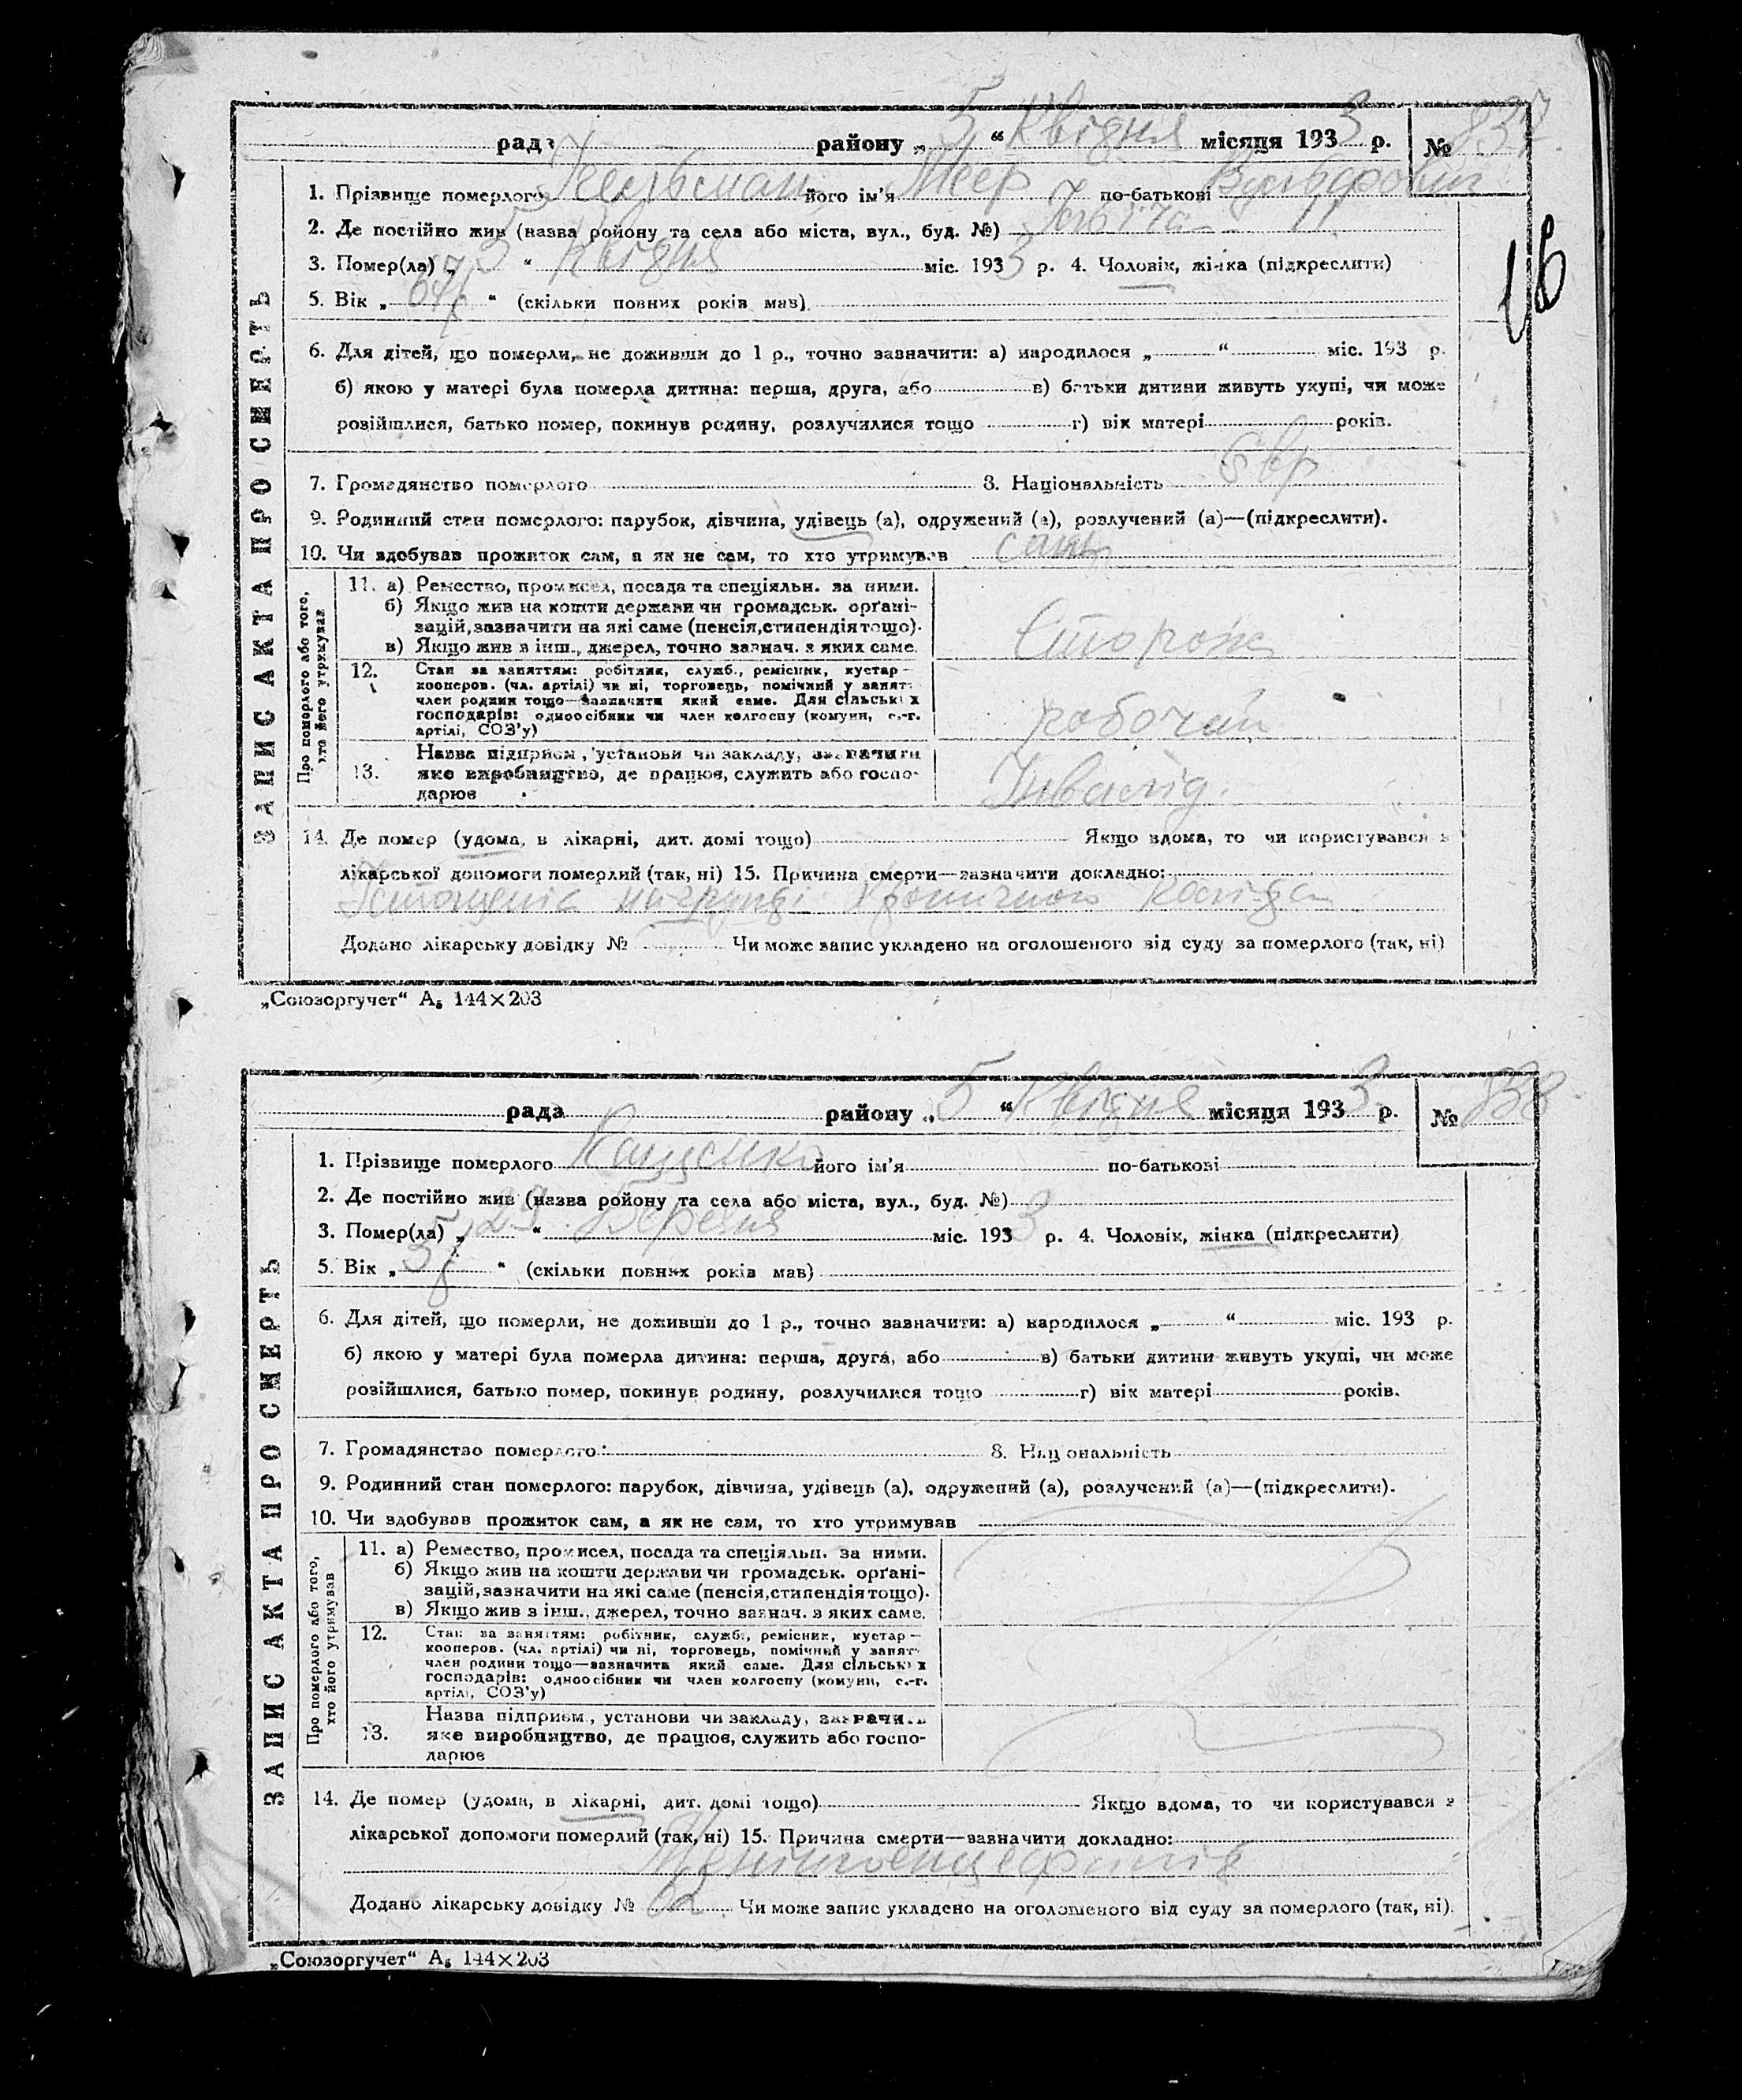 рада района „ 5 “ Квітня місяця 1933 р. № 837
1. Прізвище померлого його ім'я Меер по-батькові
2. Де постійно жив (назва ройону та села або міста, вул., буд. №)
3. Помер(ла) „ 5 “ Квітня міс. 1933 р. 4. Чоловік, жінка (підкреслити)
5. Вік „ 67 р “ (скільки повних років мав)
6. Для дітей, що померли, не доживши до 1 р., точно зазначити: а) народилося „ “ міс. 193 р.
б) якою у матері була померла дитина: перша, друга, або в) батьки дитини живуть укупі, чи може
розійшлися, батько помер, покинув родину, розлучилися тощо г) вік матері років.
7. Громадянство померлого 8. Національність Євр
9. Родинний стан померлого: парубок, дівчина, удівець (а), одружений (а), розлучений (а)—(підкреслити).
10. Чи здобував прожиток сам, а як не сам, то хто утримував сам
ЗАПИС АКТА ПРО СМЕРТЬ
Про померлого або того,
хто його утримував
11. а) Ремество, промисел, посада та спеціяльн. за ними.
б) Якщо жив на кошти держави чи громадськ. орґані-
зацій, зазначити на які саме (пенсія, стипендія тощо).
в) Якщо жив з інш., джерел, точно зазнач. з яких саме.
Сторож
12. Стан за заняттям: робітник, служб., ремісник, кустар—
кооперов. (чл. артілі) чи ні, торговець, помічний у занят
член родини тощо—зазначити який саме. Для сільських
господарів: одноосібник чи член колгоспу (комуни, с.-г.
артілі, СОЗ'у)
робочий
13. Назва підприєм., установи чи закладу, зазначити
яке виробництво, де працює, служить або госпо-
дарює
Інвалід.
14. Де помер (удома, в лікарні, дит. домі тощо) Якщо вдома, то чи користувався з
лікарської допомоги померлий (так, ні) 15. Причина смерти—зазначити докладно:
на грунті хронічного коліта
Додано лікарську довідку № Чи може запис укладено на оголошеного від суду за померлого (так, ні)
„Союзоргучет“ А₅ 144×203
16
рада району „ 5 “ Квітня місяця 1933 р. № 838
1. Прізвище померлого Кащенко його ім'я по-батькові
2. Де постійно жив (назва ройону та села або міста, вул., буд. №)
3. Помер(ла) „ 29 “ Березня міс. 1933 р. 4. Чоловік, жінка (підкреслити)
5. Вік „ 35 р “ (скільки повних років мав)
6. Для дітей, що померли, не доживши до 1 р., точно зазначити: а) народилося „ “ міс. 193 р.
б) якою у матері була померла дитина: перша, друга, або в) батьки дитини живуть укупі, чи може
розійшлися, батько помер, покинув родину, розлучилися тощо г) вік матері років.
7. Громадянство померлого 8. Національність
9. Родинний стан померлого: парубок, дівчина, удівець (а), одружений (а), розлучений (а)—(підкреслити).
10. Чи здобував прожиток сам, а як не сам, то хто утримував
ЗАПИС АКТА ПРО СМЕРТЬ
Про померлого або того,
хто його утримував
11. а) Ремество, промисел, посада та спеціяльн. за ними.
б) Якщо жив на кошти держави чи громадськ. орґані-
зацій, зазначити на які саме (пенсія, стипендія тощо).
в) Якщо жив з інш., джерел, точно зазнач. з яких саме.
12. Стан за заняттям: робітник, служб., ремісник, кустар—
кооперов. (чл. артілі) чи ні, торговець, помічний у занят
член родини тощо—зазначити який саме. Для сільських
господарів: одноосібник чи член колгоспу (комуни, с.-г.
артілі, СОЗ'у)
13. Назва підприєм., установи чи закладу, зазначить
яке виробництво, де працює, служить або госпо-
дарює
14. Де помер (удома, в лікарні, дит. домі тощо) Якщо вдома, то чи користувався з
лікарської допомоги померлий (так, ні) 15. Причина смерти—зазначити докладно:
Додано лікарську довідку № Чи може запис укладено на оголошеного від суду за померлого (так, ні).
„Союзоргучет“ А₅ 144×203